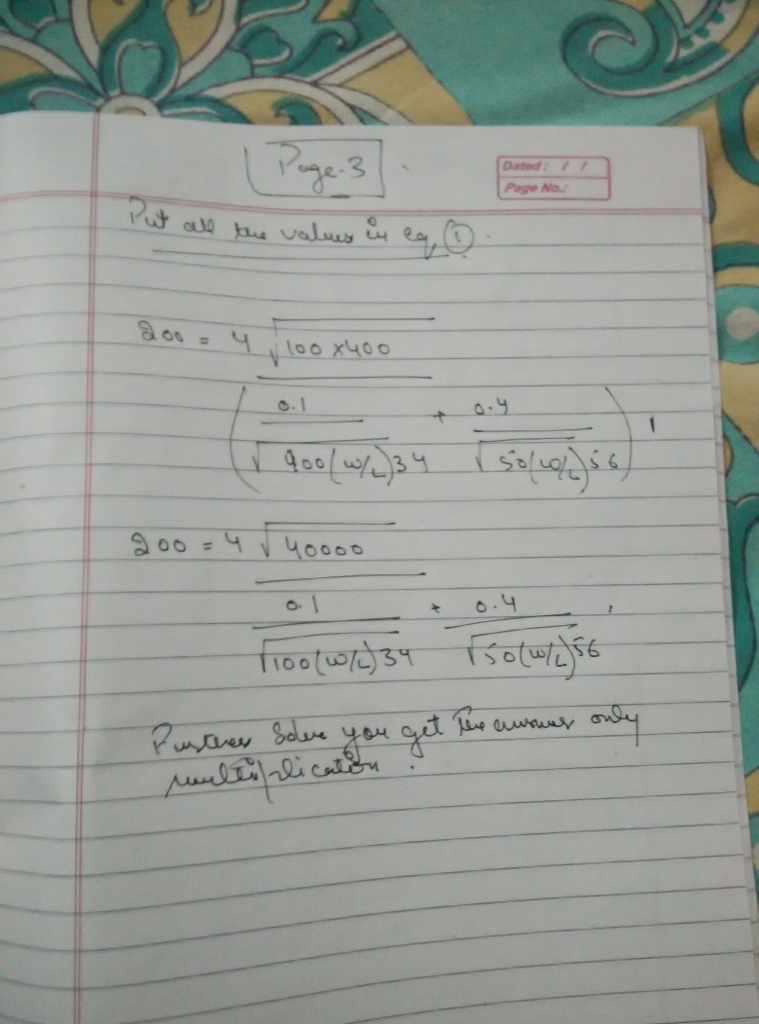 Page-3
Dated: / /
Page No.:
Put all the values in eq, ①.
200 = 4 √100 x 400
( 0.1 + 0.4
√900(W/L)34 √50(W/L)56 ) ,
200 = 4 √40000
0.1 + 0.4 ,
√100(W/L)34 √50(W/L)56
solve you get The only
multiplication .